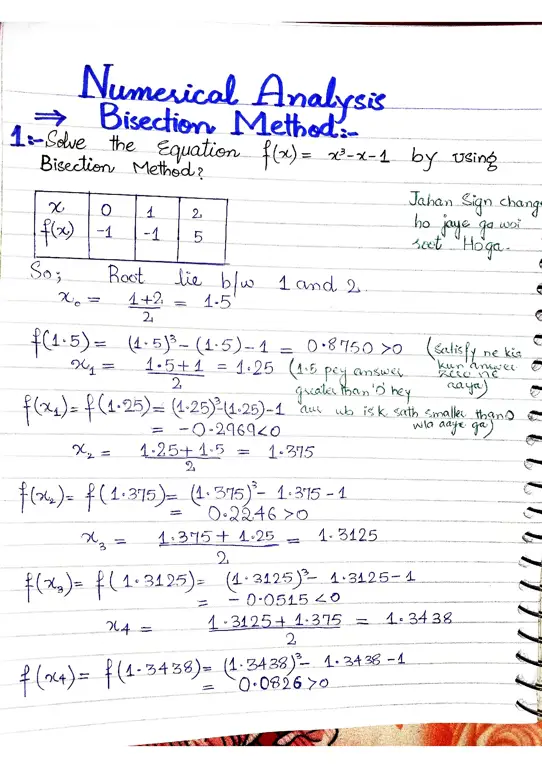 Numerical Analysis
⇒ Bisection Method:-
1:- Solve the Equation f(x) = x³-x-1 by using
Bisection Method?
x 0 1 2
f(x) -1 -1 5
Jahan Sign change
ho jaye ga woi
root Hoga.
So; Root lie b/w 1 and 2.
x₀ = (1+2)/2 = 1.5
f(1.5) = (1.5)³-(1.5)-1 = 0.8750 >0 (satisfy ne kia
kun answer
zero ne
aaya)
x₁ = (1.5+1)/2 = 1.25 (1.5 pey answer
greater than '0' hey
aur ub is k sath smaller than 0
wla aaye ga)
f(x₁) = f(1.25) = (1.25)³-(1.25)-1
= -0.2969<0
x₂ = (1.25+1.5)/2 = 1.375
f(x₂) = f(1.375) = (1.375)³- 1.375-1
= 0.2246 >0
x₃ = (1.375+1.25)/2 = 1.3125
f(x₃) = f(1.3125) = (1.3125)³- 1.3125-1
= -0.0515 <0
x4 = (1.3125+1.375)/2 = 1.3438
f(x4) = f(1.3438) = (1.3438)³- 1.3438-1
= 0.0826>0